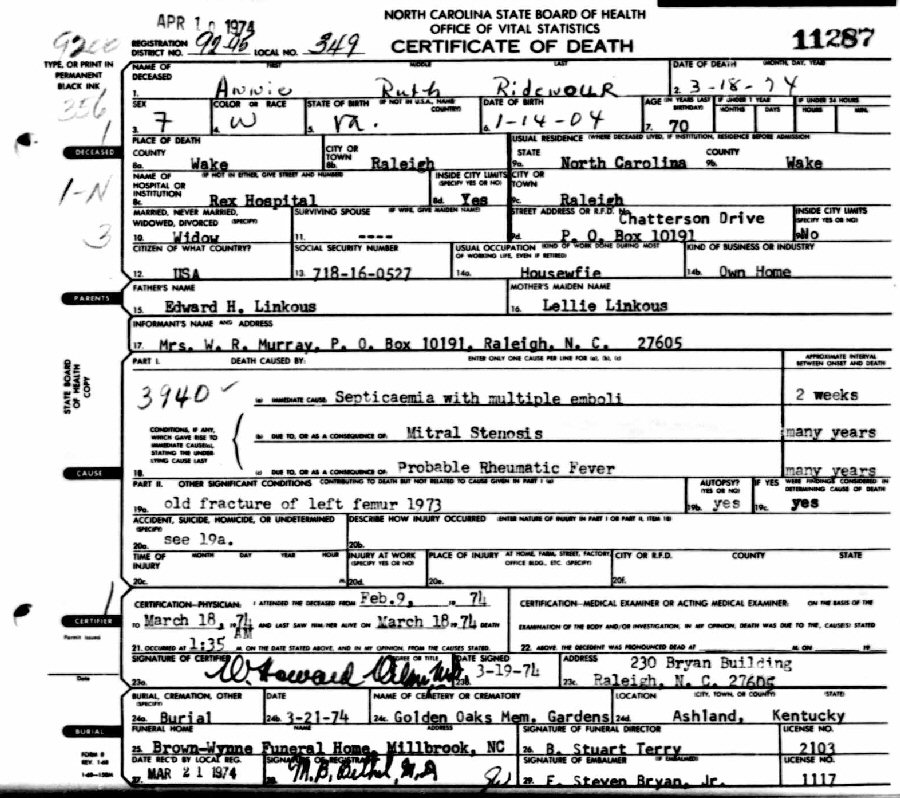 APR 1 1974
NORTH CAROLINA STATE BOARD OF HEALTH
OFFICE OF VITAL STATISTICS
CERTIFICATE OF DEATH
11287
REGISTRATION DISTRICT NO. 9295 LOCAL NO. 349
TYPE, OR PRINT IN PERMANENT BLACK INK
356
1
1-N
3
DECEASED
NAME OF DECEASED FIRST MIDDLE LAST DATE OF DEATH (MONTH, DAY, YEAR)
1. Annie Ruth Ridenour 2. 3-18-74
SEX COLOR OR RACE STATE OF BIRTH (IF NOT IN U.S.A., NAME COUNTRY) DATE OF BIRTH AGE (IN YEARS LAST BIRTHDAY) IF UNDER 1 YEAR MONTHS DAYS IF UNDER 24 HOURS HOURS MIN.
3. F 4. W 5. Va. 6. 1-14-04 7. 70
PLACE OF DEATH USUAL RESIDENCE (WHERE DECEASED LIVED, IF INSTITUTION, RESIDENCE BEFORE ADMISSION
COUNTY CITY OR TOWN STATE COUNTY
8a. Wake 8b. Raleigh 9a. North Carolina 9b. Wake
NAME OF HOSPITAL OR INSTITUTION (IF NOT IN EITHER, GIVE STREET AND NUMBER) INSIDE CITY LIMITS (SPECIFY YES OR NO) CITY OR TOWN
8c. Rex Hospital 8d. Yes 9c. Raleigh
MARRIED, NEVER MARRIED, WIDOWED, DIVORCED (SPECIFY) SURVIVING SPOUSE (IF WIFE, GIVE MAIDEN NAME) STREET ADDRESS OR R.F.D. No. Chatterson Drive INSIDE CITY LIMITS (SPECIFY YES OR NO)
10. Widow 11. ---- 9d. P. O. Box 10191 No
CITIZEN OF WHAT COUNTRY? SOCIAL SECURITY NUMBER USUAL OCCUPATION (KIND OF WORK DONE DURING MOST OF WORKING LIFE, EVEN IF RETIRED) KIND OF BUSINESS OR INDUSTRY
12. USA 13. 718-16-0527 14a. Housewfie 14b. Own Home
PARENTS
FATHER'S NAME MOTHER'S MAIDEN NAME
15. Edward H. Linkous 16. Lellie Linkous
INFORMANT'S NAME AND ADDRESS
17. Mrs. W. R. Murray, P. O. Box 10191, Raleigh, N. C. 27605
STATE BOARD OF HEALTH COPY
PART I. DEATH CAUSED BY: ENTER ONLY ONE CAUSE PER LINE FOR (a), (b), (c) APPROXIMATE INTERVAL BETWEEN ONSET AND DEATH
3940
(a) IMMEDIATE CAUSE Septicaemia with multiple emboli 2 weeks
CONDITIONS, IF ANY, WHICH GAVE RISE TO IMMEDIATE CAUSE(a), STATING THE UNDERLYING CAUSE LAST
(b) DUE TO, OR AS A CONSEQUENCE OF: Mitral Stenosis many years
CAUSE
18. (c) DUE TO, OR AS A CONSEQUENCE OF: Probable Rheumatic Fever many years
PART II. OTHER SIGNIFICANT CONDITIONS CONTRIBUTING TO DEATH BUT NOT RELATED TO CAUSE GIVEN IN PART I (a) AUTOPSY? (YES OR NO) IF YES WERE FINDINGS CONSIDERED IN DETERMINING CAUSE OF DEATH
19a. old fracture of left femur 1973 19b. yes 19c. yes
ACCIDENT, SUICIDE, HOMICIDE, OR UNDETERMINED (SPECIFY) DESCRIBE HOW INJURY OCCURRED (ENTER NATURE OF INJURY IN PART I OR PART II, ITEM 18)
20a. see 19a. 20b.
TIME OF INJURY MONTH DAY YEAR HOUR INJURY AT WORK (SPECIFY YES OR NO) PLACE OF INJURY AT HOME, FARM, STREET, FACTORY, OFFICE BLDG., ETC. (SPECIFY) CITY OR R.F.D. COUNTY STATE
20c. m. 20d. 20e. 20f.
CERTIFIER
Permit Issued
Date
CERTIFICATION-PHYSICIAN: I ATTENDED THE DECEASED FROM Feb.9, 19 74
TO March 18, 1974 AND LAST SAW HIM/HER ALIVE ON March 18, 1974 DEATH
21. OCCURRED AT 1:35 AM M. ON THE DATE STATED ABOVE, AND IN MY OPINION, FROM THE CAUSES STATED.
CERTIFICATION-MEDICAL EXAMINER OR ACTING MEDICAL EXAMINER: ON THE BASIS OF THE
EXAMINATION OF THE BODY AND/OR INVESTIGATION, IN MY OPINION, DEATH WAS DUE TO THE, CAUSE(S) STATED
22. ABOVE. THE DECEDENT WAS PRONOUNCED DEAD AT M. ON 19
SIGNATURE OF CERTIFIER DEGREE OR TITLE DATE SIGNED ADDRESS 230 Bryan Building
23a. W. Howard 23b. 3-19-74 23c. Raleigh, N. C. 27605
BURIAL
BURIAL, CREMATION, OTHER (SPECIFY) DATE NAME OF CEMETERY OR CREMATORY LOCATION (CITY, TOWN, OR COUNTY) (STATE)
24a. Burial 24b. 3-21-74 24c. Golden Oaks Mem. Gardens 24d. Ashland, Kentucky
FUNERAL HOME NAME ADDRESS SIGNATURE OF FUNERAL DIRECTOR LICENSE NO.
25. Brown-Wynne Funeral Home, Millbrook, NC 26. B. Stuart Terry 2103
FORM 8
REV. 1-68
DATE REC'D BY LOCAL REG. SIGNATURE OF REGISTRAR SIGNATURE OF EMBALMER (IF EMBALMED) LICENSE NO.
27. MAR 21 1974 28. M.B. Bethel, M.D 29. F. Steven Bryan, Jr. 1117